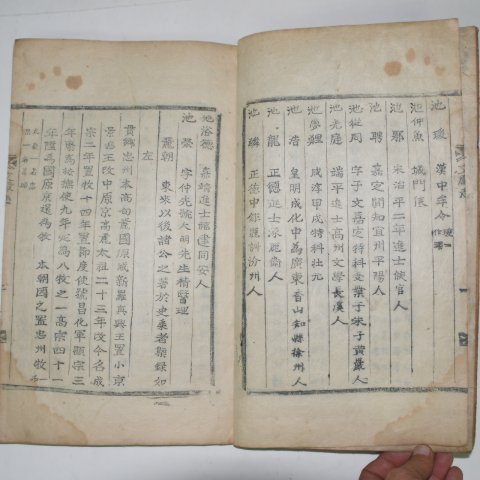 池瑗 漢中牟令
池仲魚 城門侯
池郢 宋治平二年進士侯官人
池聘 嘉定開知宜州平陽人
池從周 字子文嘉定特科 人
池光庭 端平進士高州文學長溪人
池夢鯉 咸淳甲戌特科壯元
池浩 皇明成化中為廣東香山知縣徐州人
池龍 正德進士 人
池麟 正德中 訓汾州人
池浴德 嘉靖進士福建同安人
池榮 字仲先號人朗先生精醫理
麗朝 東來以後諸公之著於史乘者懸錄如
左
貫鄕忠州本高句麗國原城新羅眞興王置小京
景德王改中原京高麗太祖二十三年改今名成
宗二年置牧十四年置節度使號昌化軍顯宗三
年廢為按撫使九年定為八牧之一高宗四十一
年陞為國原京還為牧 本朝因之置忠州牧